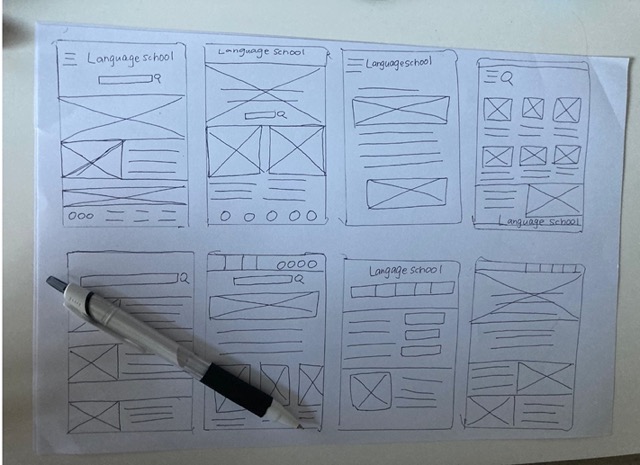 Language school
Language school
Language school
Language school
Langage school